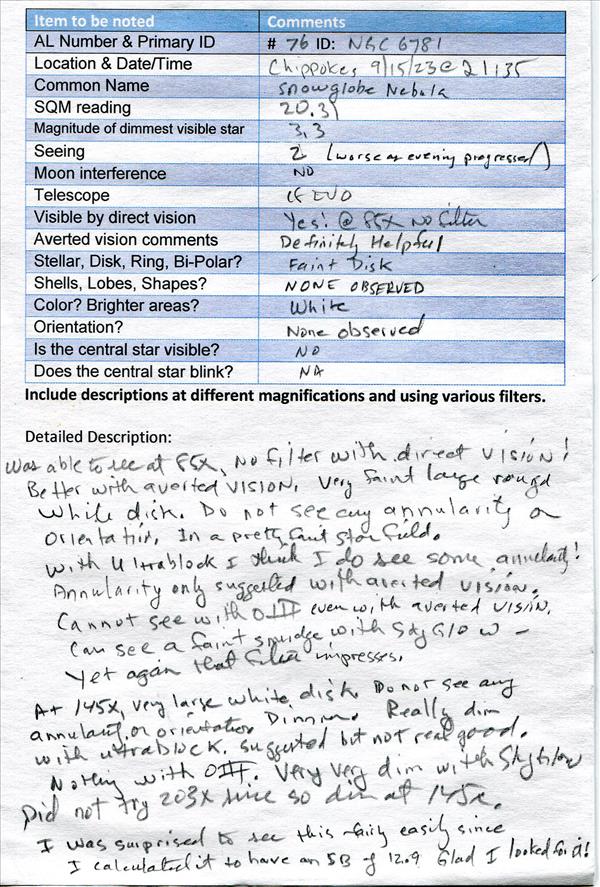 Item to be noted Comments
AL Number & Primary ID # 76 ID: NGC 6781
Location & Date/Time Chippokes 9/15/23 @ 21:35
Common Name Snowglobe Nebula
SQM reading 20.31
Magnitude of dimmest visible star 3.3
Seeing 2 (worse as evening progressed)
Moon interference NO
Telescope EVO
Visible by direct vision Yes! @ 85X No filter
Averted vision comments Definitely Helpful
Stellar, Disk, Ring, Bi-Polar? Faint Disk
Shells, Lobes, Shapes? NONE OBSERVED
Color? Brighter areas? White
Orientation? None observed
Is the central star visible? NO
Does the central star blink? NA
Include descriptions at different magnifications and using various filters.
Detailed Description:
Was able to see at 85X, No filter with direct VISION!
Better with averted VISION. Very faint large round
White disk. Do not see any annularity or
Orientation. In a pretty faint star field.
With Ultrablock I think I do see some annularity!
Annularity only suggested with averted vision.
Cannot see with OIII even with averted vision.
Can see a faint smudge with SkyGlow -
Yet again that filter impresses.
At 145X, very large white disk. Do not see any
annularity or orientation Dimmer. Really dim
with ultrablock. suggested but not real good.
Nothing with OIII. Very Very dim with Skyglow
Did not try 203X since so dim at 145x.
I was surprised to see this fairly easily since
I calculated it to have an SB of 12.9 Glad I looked for it!